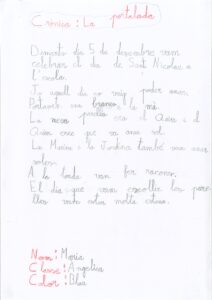 Crònica: La portalada
Dimarts dia 5 de desembre vam
celebrar el dia de Sant Nicolau a
l'escola.
Jo aquell dia no vaig poder anar.
Portaven una branca a la mà.
La meva parella era el Anira i el
que va anar sol.
La Marina i la també van anar
soles.
A la tarda vam fer racons.
El dia que vam escollir les pare
lles vam estar molta estona.
Nom: Maria
Classe: Angelina
Color: Blau